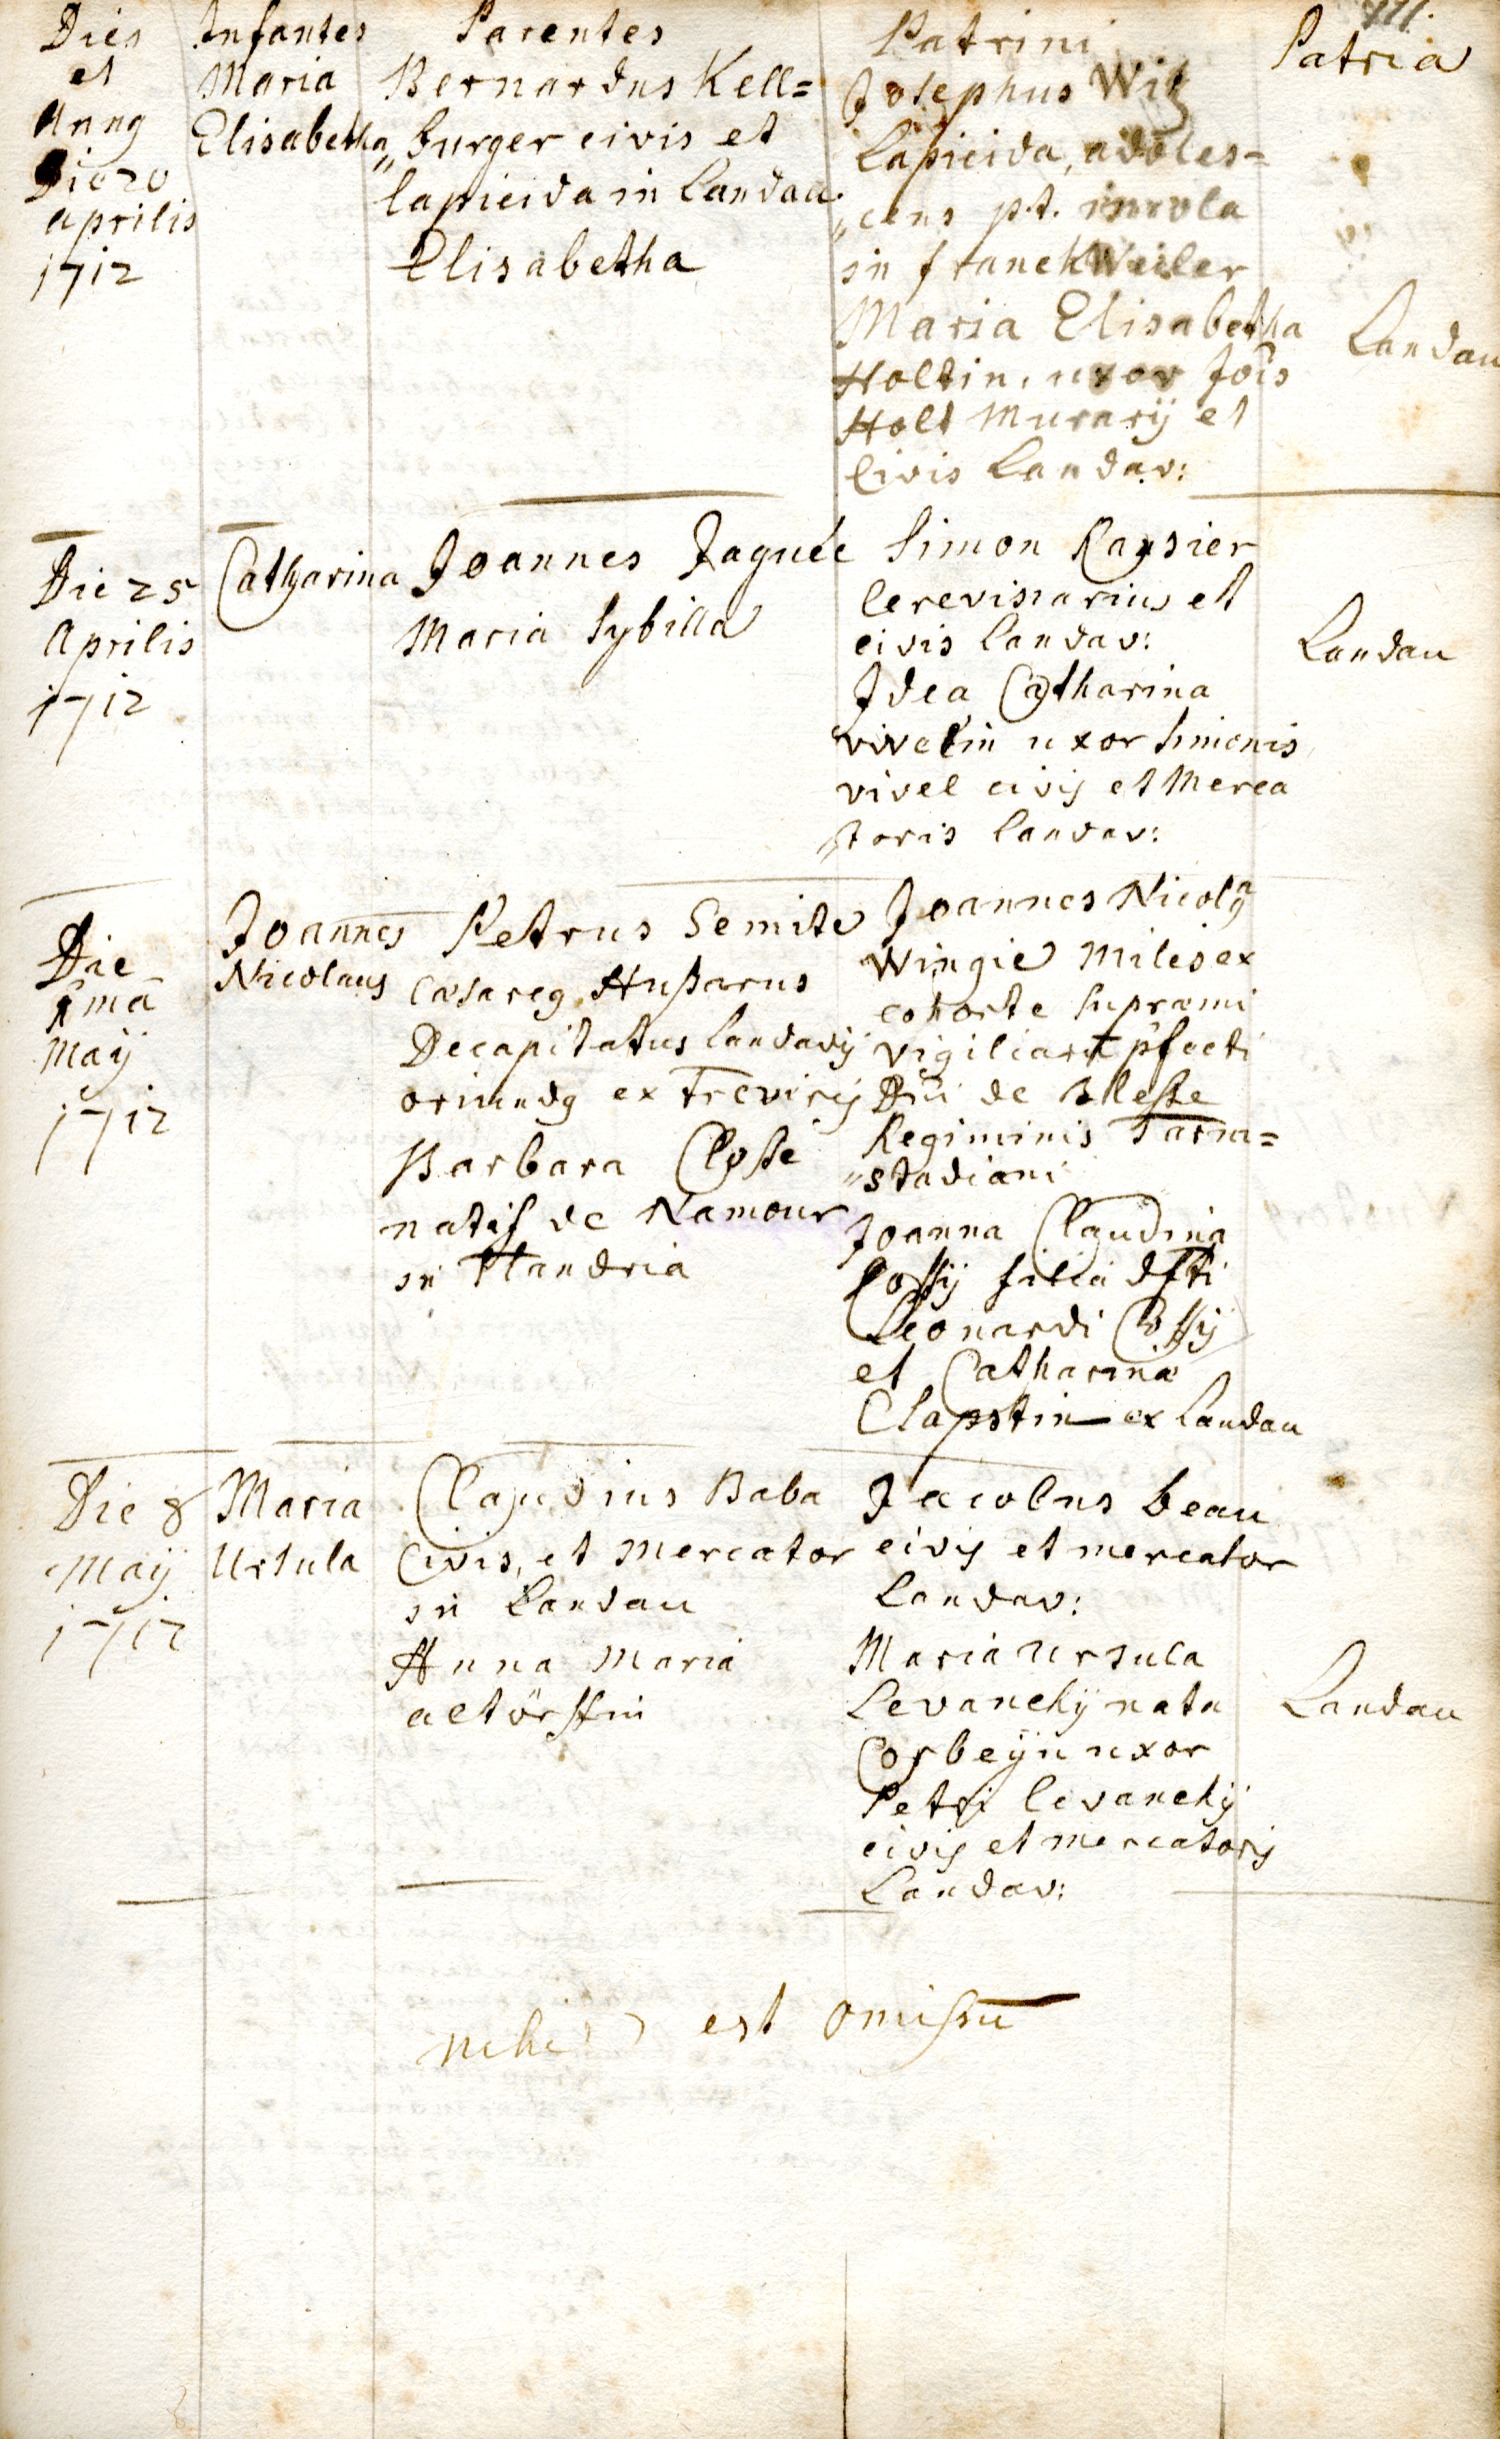 111.
Dies
et
Anng
Die 20
aprilis
1712
Infantes
Maria
Elisabetha
Parentes
Bernardus Kell=
„burger civis et
lapicida in Landau.
Elisabetha
Patrini
Josephus Witz
Lapicida, adoles=
„cens p.t. incola
in franckWeiler
Maria Elisabetha
Holtin, uxor Jois
Holt Murarij et
Civis Landav:
Patria
Landau
Die 25
Aprilis
1712
Catharina
Joannes Jaguée
Maria Sybilla
Simon Kaysier
Cerevisiarius et
civis Landav:
Idea Catharina
vivelin uxor Simonis
vivel civis et Merca
toris Landav:
Landau
Die
1mâ
Maij
1712
Joannes
Nicolaus
Petrus Semite
Cæsareg Hußarus
Decapitatus Landavij
oriundg ex Treviris
Barbara Closse
natif de Namour
in Flandria
Joannes Nicolg
Wingie Miles ex
cohorte Supræmi
vigiliarū pfecti
Dni de Blesse
Regiminis Tarm=
„stadiani
Joanna Claudina
Cossij filia dfti
Leonardi Cossij
et Catharinæ
Clapstin ex Landau
Die 8
Maij
1712
Maria
Ursula
Claudius Baba
Civis, et Mercator
in Landau
Anna Maria
altörffin
Jacobus beau
civis et mercator
Landav:
Maria Ursula
Levanchij nata
Corbeijn uxor
Petri levanchij
civis et mercatoris
Landav:
Landau
nihil est omißū